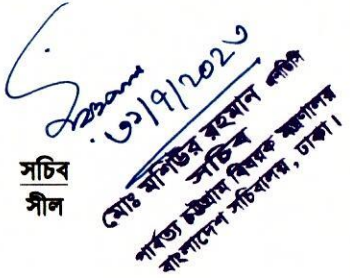 ৩১/৭/২০২৩
সচিব
সীল
মোঃ মশিউর রহমান এনডিসি
সচিব
পার্বত্য চট্টগ্রাম বিষয়ক মন্ত্রণালয়
বাংলাদেশ সচিবালয়, ঢাকা।